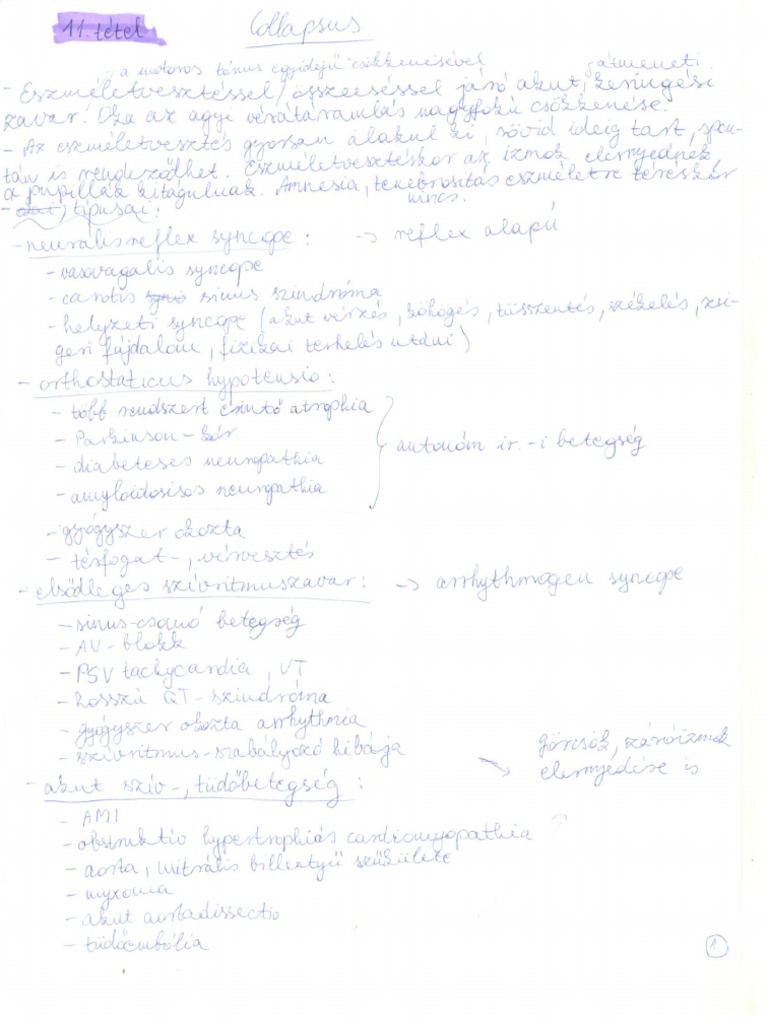 11. tétel
Collapsus
a motoros tónus egyidejű csökkenésével átmeneti
- Eszméletvesztéssel / összeeséssel járó akut, keringési
zavar. Oka az agyi vérátáramlás nagyfokú csökkenése.
- Az eszméletvesztés gyorsan alakul ki, rövid ideig tart, spon-
tán is rendeződhet. Eszméletvesztéskor az izmok elernyednek
a pupillák kitágulnak. Amnesia, tenebrositás eszméletre téréskor
nincs.
- típusai:
- neuralis reflex syncope: -> reflex alapú
- vasovagalis syncope
- carotis sinus szindróma
- helyzeti syncope (akut vérzés, köhögés, tüsszentés, székelés, zsi-
geri fájdalom, fizikai terhelés utáni)
- orthostaticus hypotensio:
- több rendszert érintő atrophia
- Parkinson-kór
- diabeteses neuropathia
- amyloidosisos neuropathia
autonóm ir.-i betegség
- gyógyszer okozta
- térfogat-, vérvesztés
- elsődleges szívritmuszavar: -> arrhythmogen syncope
- sinus-csomó betegség
- AV-blokk
- PSV tachycardia, VT
- hosszú QT-szindróma
- gyógyszer okozta arrhythmia
- szívritmus-szabályozó hibája
görcsök, záróizmok
elernyedése is
- akut szív-, tüdőbetegség:
- AMI
- obstruktív hypertrophiás cardiomyopathia ?
- aorta, mitrális billentyű szűkülete
- myxoma
- akut aortadissectio
- tüdőembólia
1